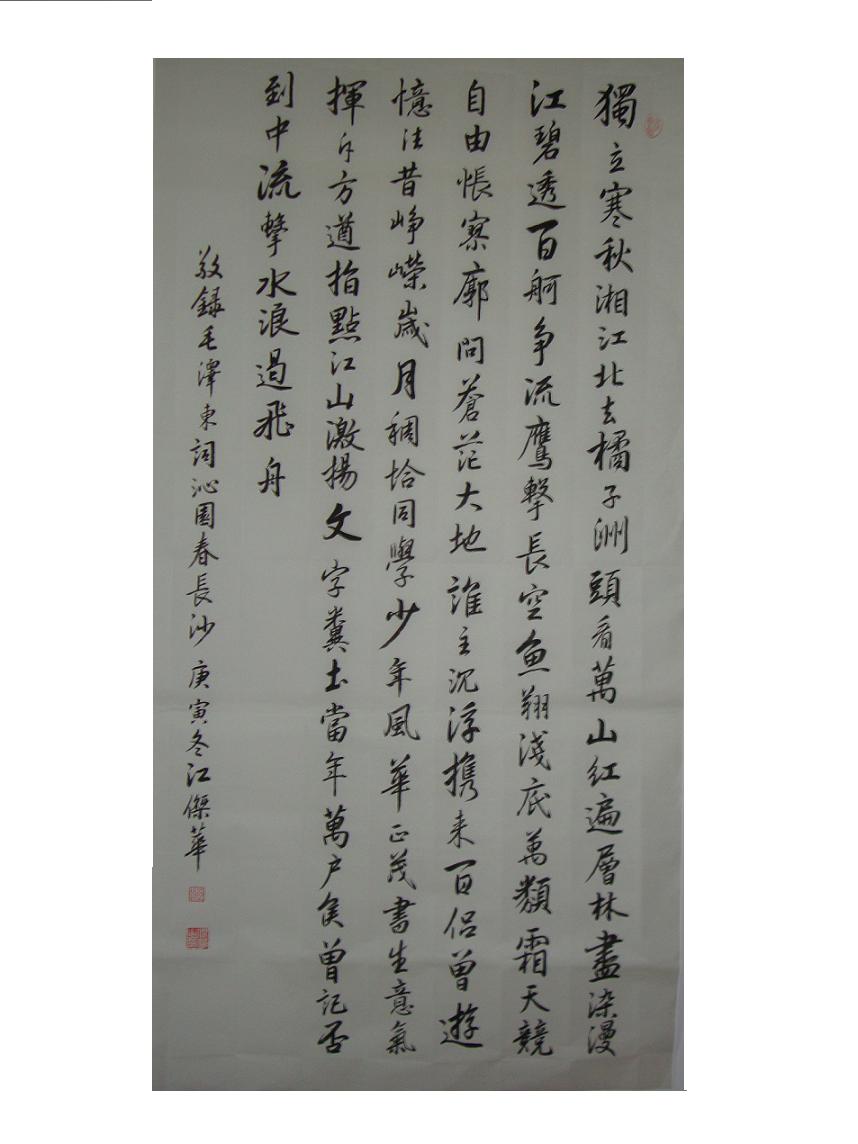 獨立寒秋湘江北去橘子洲頭看萬山紅遍層林盡染漫
江碧透百舸争流鷹擊長空魚翔淺底萬類霜天競
自由悵寥廓問蒼茫大地誰主沉浮携来百侣曾遊
憶往昔峥嶸歲月稠恰同學少年風華正茂書生意氣
揮斥方遒指點江山激揚文字糞土當年萬户侯曾記否
到中流擊水浪遏飛舟
敬録毛澤東詞沁園春長沙 庚寅冬江傑華